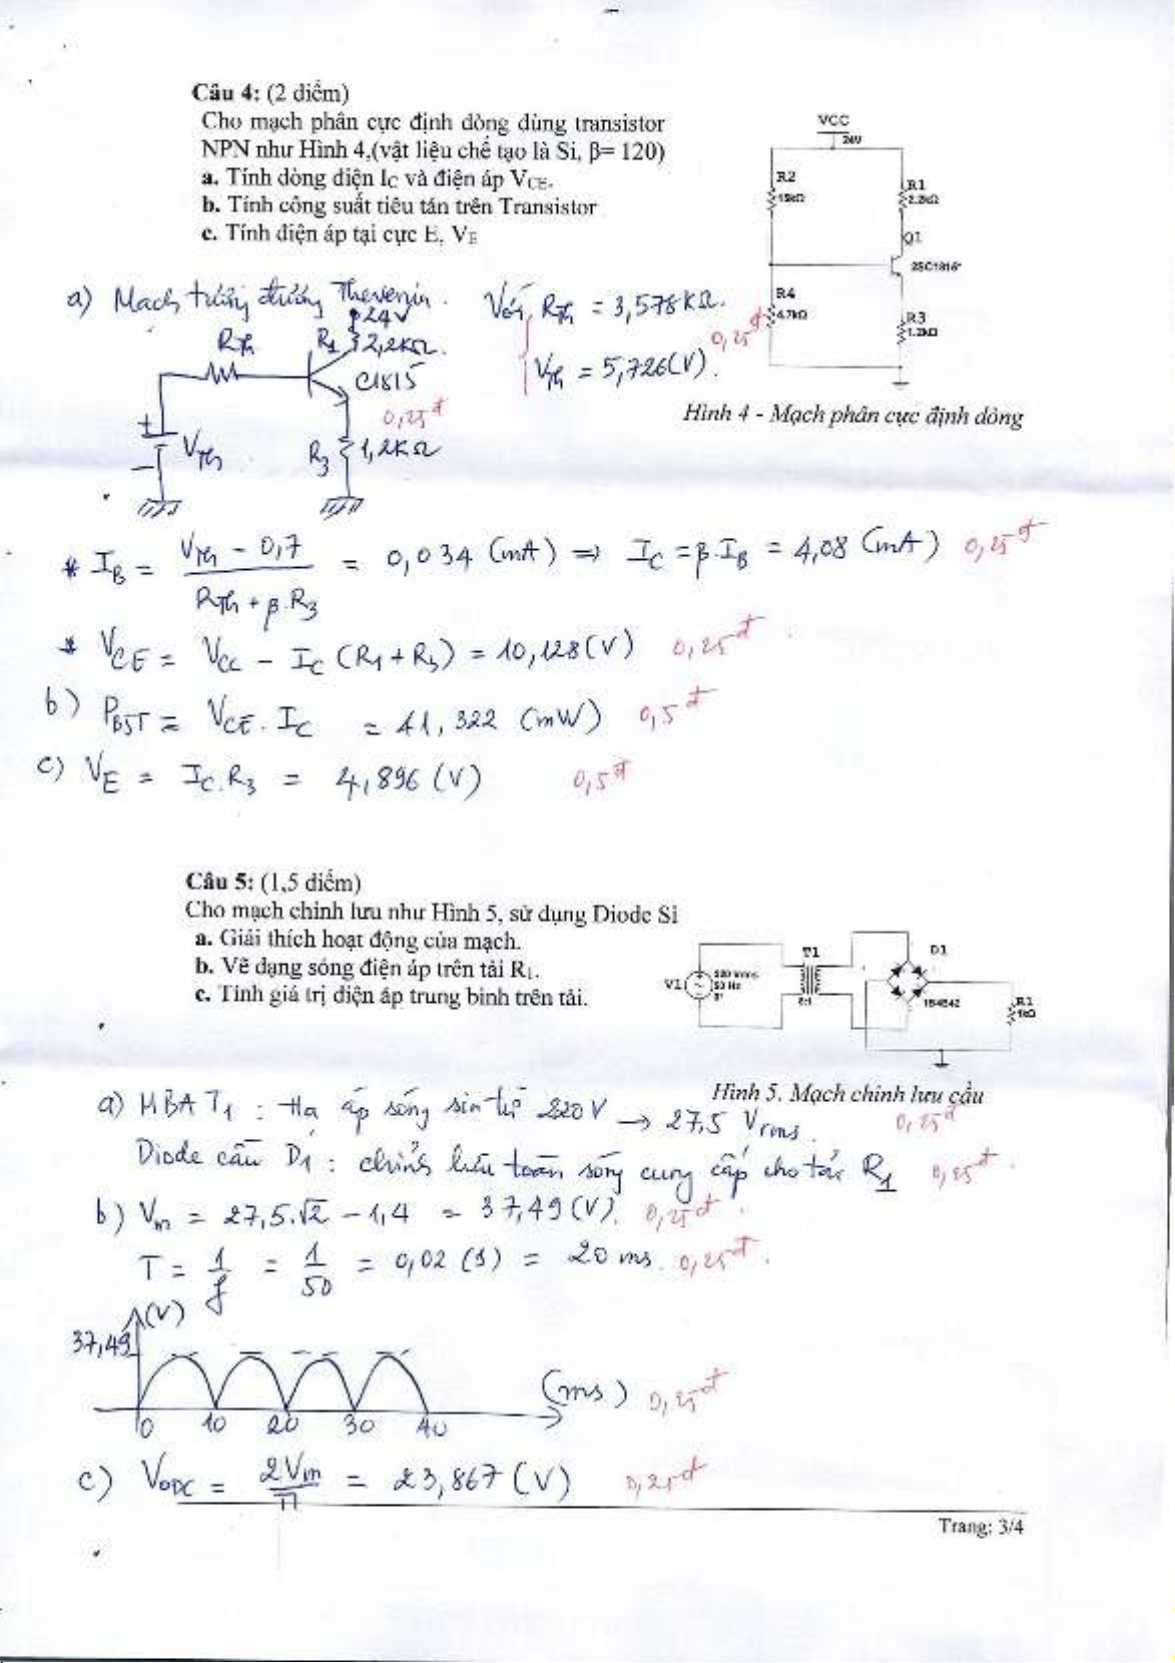 Câu 4: (2 điểm)
Cho mạch phân cực định dòng dùng transistor
NPN như Hình 4,(vật liệu chế tạo là Si, β= 120)
a. Tính dòng điện IC và điện áp VCE.
b. Tính công suất tiêu tán trên Transistor
c. Tính điện áp tại cực E, VE
VCC
24V
R2
15kΩ
R1
2.2kΩ
Q1
2SC1815
R4
4.7kΩ
R3
1.2kΩ
Hình 4 - Mạch phân cực định dòng
a) Mạch tương đương Thevenin. Với RTh = 3,578KΩ.
VTh = 5,726(V). 0,25đ
24V
RTh R1 2,2KΩ.
C1815
0,25đ
+
VTh R3 1,2KΩ
-
* IB = (VTh - 0,7) / (RTh + β.R3) = 0,034 (mA) ⇒ IC = β.IB = 4,08 (mA) 0,25đ
* VCE = VCC - IC (R1+R3) = 10,128(V) 0,25đ
b) PBJT = VCE.IC = 41,322 (mW) 0,5đ
c) VE = IC.R3 = 4,896 (V) 0,5đ
Câu 5: (1,5 điểm)
Cho mạch chỉnh lưu như Hình 5, sử dụng Diode Si
a. Giải thích hoạt động của mạch.
b. Vẽ dạng sóng điện áp trên tải R1.
c. Tính giá trị điện áp trung bình trên tải.
V1
220 Vrms
50 Hz
0°
T1
8:1
D1
R1
1kΩ
Hình 5. Mạch chỉnh lưu cầu
a) MBA T1 : Hạ áp sóng sin từ 220V → 27,5 Vrms. 0,25đ
Diode cầu D1 : chỉnh lưu toàn sóng cung cấp cho tải R1 0,25đ.
b) Vm = 27,5.√2 - 1,4 = 37,49(V). 0,25đ.
T = 1/f = 1/50 = 0,02 (s) = 20 ms. 0,25đ.
(V)
37,49
0 10 20 30 40
(ms) 0,25đ
c) VODC = 2Vm/π = 23,867 (V) 0,25đ
Trang: 3/4